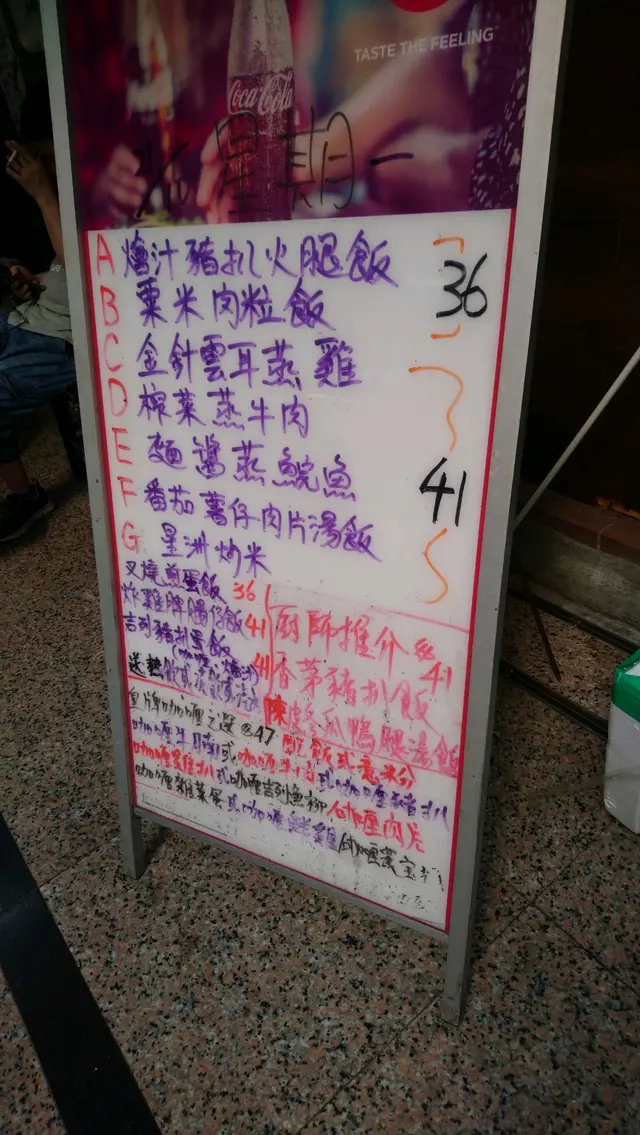 TASTE THE FEELING
Coca-Cola
星期一
A 燴汁豬扒火腿飯
B 粟米肉粒飯
36
C 金針雲耳蒸雞
D 榨菜蒸牛肉
E 麵醬蒸鯇魚
41
F 番茄薯仔肉片湯飯
G 星洲炒米
叉燒煎蛋飯 36
炸雞脾腸仔飯 41
吉列豬扒蛋飯
41
送熱飲或
厨師推介
41
香茅豬扒飯
陳皮冬瓜鴨腿湯飯
皇牌咖喱之選 @47 配飯或意米分
咖喱牛腩或咖喱牛肉或咖喱豬扒
咖喱雞扒或咖喱吉列魚柳 咖喱肉片
咖喱雜菜